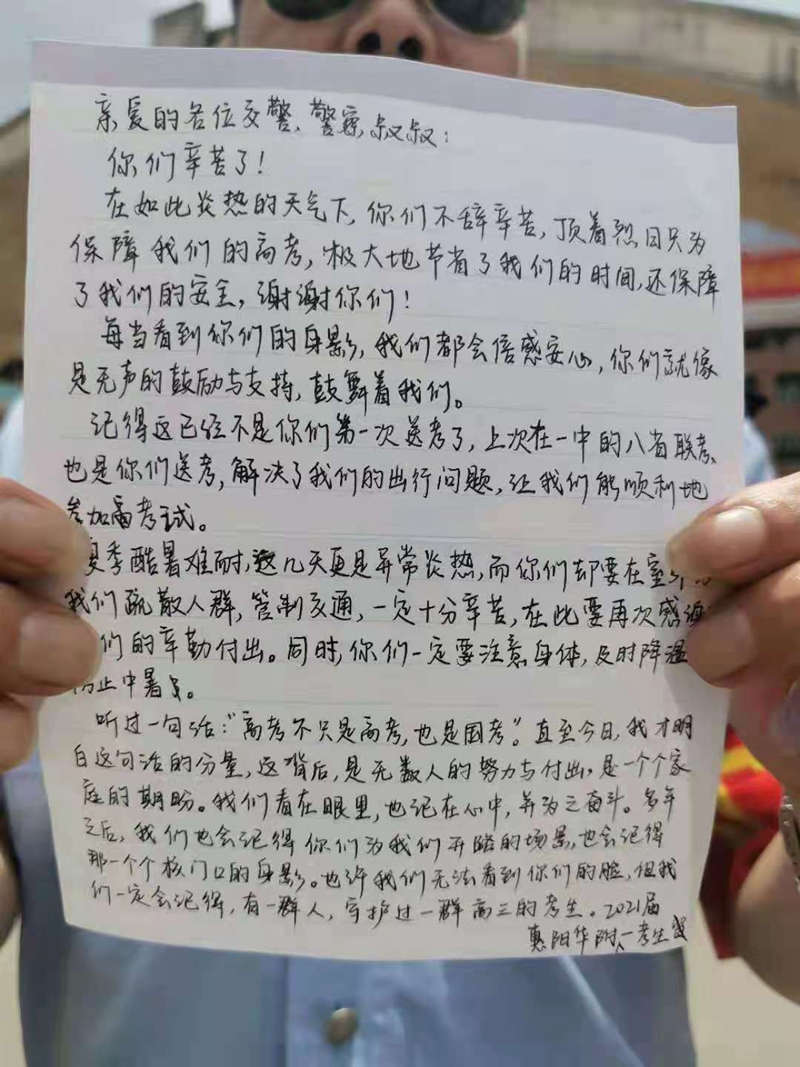 亲爱的各位交警、警察叔叔：
你们辛苦了！
在如此炎热的天气下，你们不辞辛苦，顶着烈日只为
保障我们的高考，极大地节省了我们的时间，还保障
了我们的安全，谢谢你们！
每当看到你们的身影，我们都会倍感安心，你们就像
是无声的鼓励与支持，鼓舞着我们。
记得这已经不是你们第一次送考了，上次在一中的八省联考，
也是你们送考，解决了我们的出行问题，让我们能顺利地
参加高考试。
夏季酷暑难耐，这几天更是异常炎热，而你们却要在室外
我们疏散人群，管制交通，一定十分辛苦，在此要再次感谢
们的辛勤付出。同时，你们一定要注意身体，及时降温
防止中暑。
听过一句话：“高考不只是高考，也是国考”。直至今日，我才明
白这句话的分量，这背后，是无数人的努力与付出，是一个个家
庭的期盼。我们看在眼里，也记在心中，并为之奋斗。多年
之后，我们也会记得你们为我们开路的场景，也会记得
那一个个校门口的身影。也许我们无法看到你们的脸，但我
们一定会记得，有一群人，守护过一群高三的考生。2021届
惠阳华附一考生